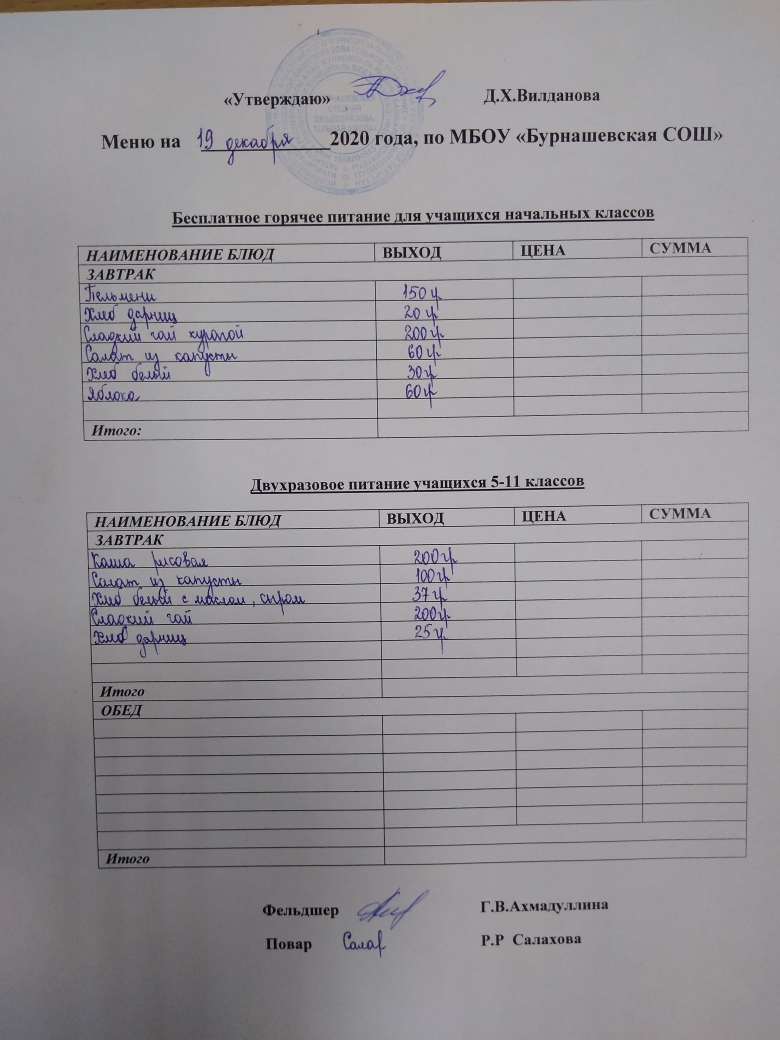 «Утверждаю» Д.Х.Вилданова
Меню на 19 декабря 2020 года, по МБОУ «Бурнашевская СОШ»
Бесплатное горячее питание для учащихся начальных классов
НАИМЕНОВАНИЕ БЛЮД ВЫХОД ЦЕНА СУММА
ЗАВТРАК
Пельмени 150 гр
Хлеб дарниц 20 гр
Сладкий чай курагой 200 гр
Салат из капусты 60 гр
Хлеб белый 30 гр
Яблоко 60 гр
Итого:
Двухразовое питание учащихся 5-11 классов
НАИМЕНОВАНИЕ БЛЮД ВЫХОД ЦЕНА СУММА
ЗАВТРАК
Каша рисовая 200 гр
Салат из капусты 100 гр
Хлеб белый с маслом, сыром 37 гр
Сладкий чай 200 гр
Хлеб дарниц 25 гр
Итого
ОБЕД
Итого
Фельдшер Г.В.Ахмадуллина
Повар Салах Р.Р Салахова